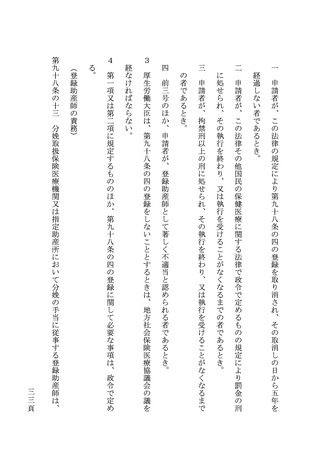 一　申請者が、この法律の規定により第九十八条の四の登録を取り消され、その取消しの日から五年を
経過しない者であるとき。
二　申請者が、この法律その他国民の保健医療に関する法律で政令で定めるものの規定により罰金の刑
に処せられ、その執行を終わり、又は執行を受けることがなくなるまでの者であるとき。
三　申請者が、拘禁刑以上の刑に処せられ、その執行を終わり、又は執行を受けることがなくなるまで
の者であるとき。
四　前三号のほか、申請者が、登録助産師として著しく不適当と認められる者であるとき。
３　厚生労働大臣は、第九十八条の四の登録をしないこととするときは、地方社会保険医療協議会の議を
経なければならない。
４　第一項又は第二項に規定するもののほか、第九十八条の四の登録に関して必要な事項は、政令で定め
る。
（登録助産師の責務）
第九十八条の十三　分娩取扱保険医療機関又は指定助産所において分娩の手当に従事する登録助産師は、
三三頁